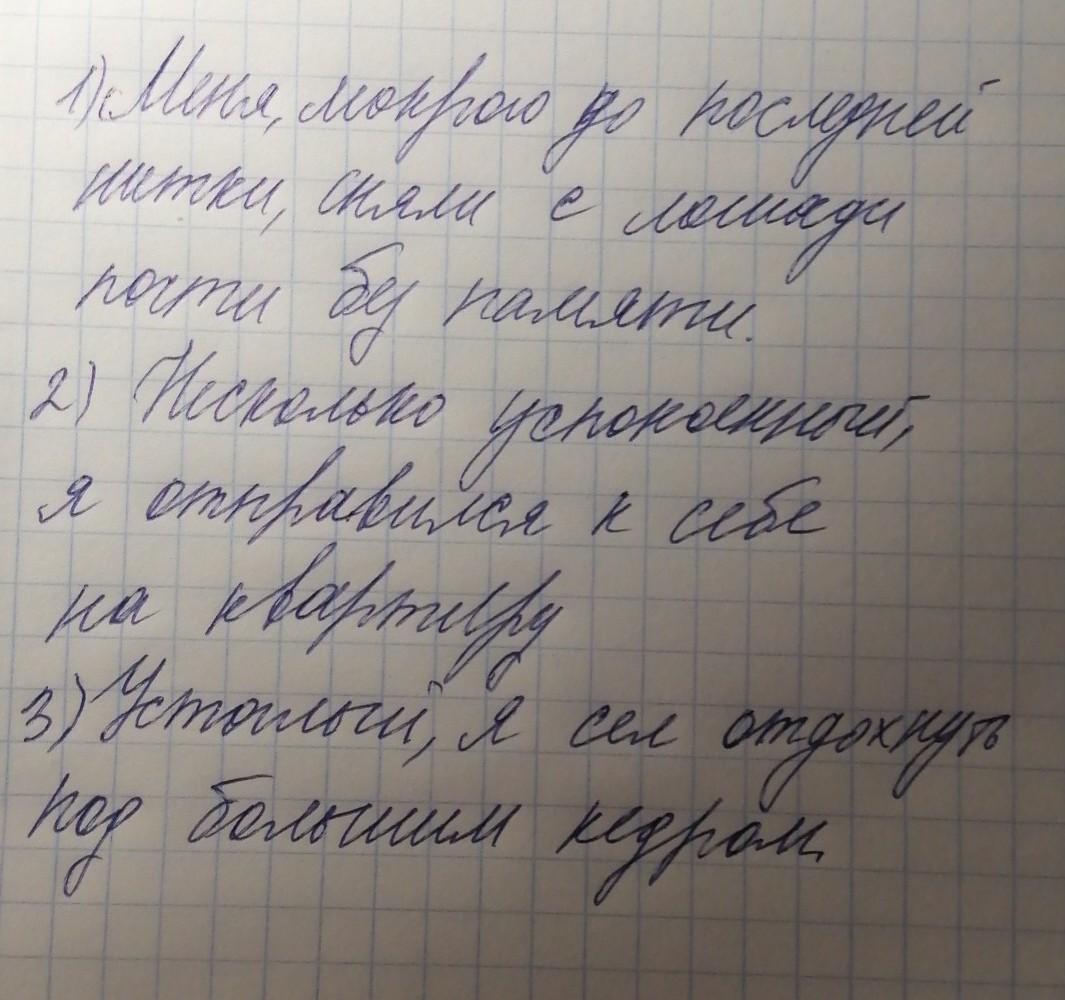 1) Меня, мокрого до последней
нитки, сняли с лошади
почти без памяти.
2) Несколько успокоенный,
я отправился к себе
на квартиру
3) Усталый, я сел отдохнуть
под большим кедром.